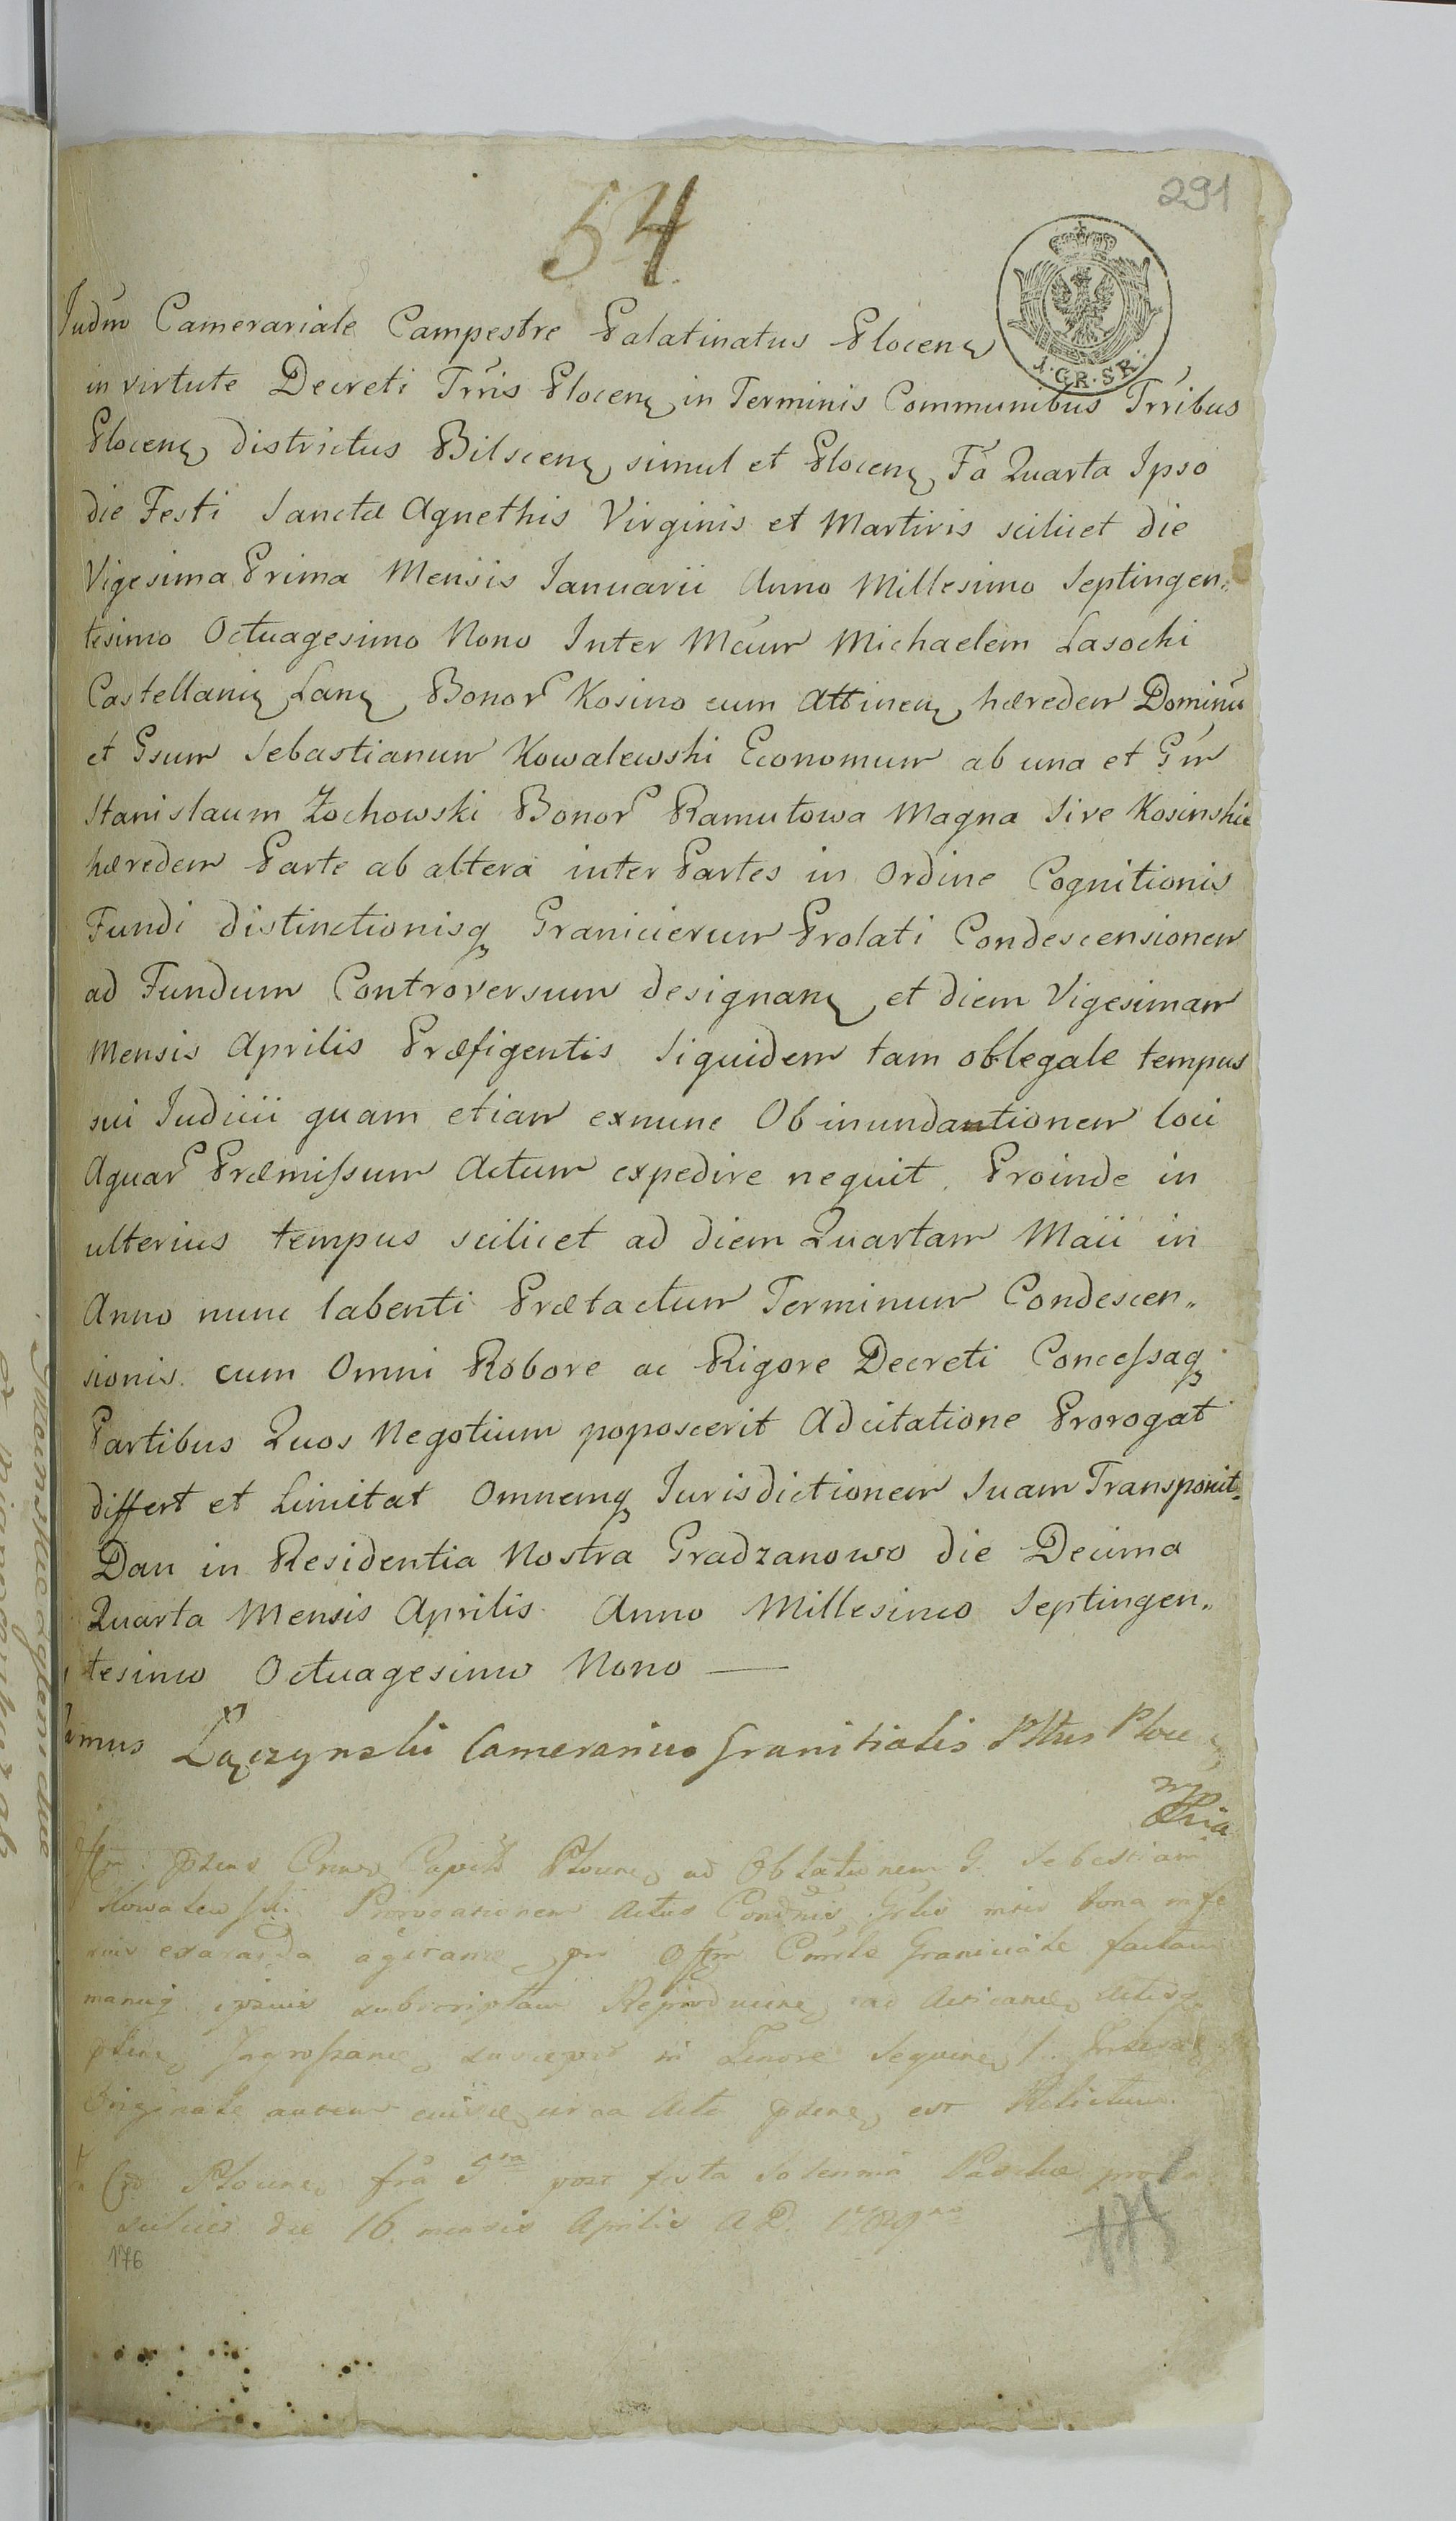 291
54
1·GR·SR·
Judm Camerariale Campestre Palatinatus Plocen
in virtute Decreti Trris Plocen in Terminis Communibus Trribus
Plocen districtus Bilscen simul et Plocen Fa Quarta Ipso
die Festi Sanctæ Agnethis Virginis et Martiris scilicet die
Vigesima Prima Mensis Januarii Anno Millesimo Septingen„
tesimo Octuagesimo Nono Inter Mcum Michaelem Lasocki
Castellani Bonor Kosino cum Attinen hæredem Dominu
et Gsum Sebastianum Kowalewski Economum ab una et Gm
Stanislaum Zochowski Bonor Ramutowa Magna Sive Kosinskie
hæredem Parte ab altera inter Partes in Ordine Cognitionis
Fundi distinctionisq Granicierum Prolati Condescensionem
ad Fundum Controversum designan et diem Vigesimam
Mensis Aprilis Præfigentis Siquidem tam oblegale tempus
sui Judicii quam etiam exnunc Ob inundationem loci
Aquar Præmissum Actum expedire nequit. Proinde in
ulterius tempus scilicet ad diem Quartam Maii in
Anno nunc labenti Prætactum Terminum Condescen„
sionis cum Omni Robore ac Rigore Decreti Concessaq
Partibus Quos Negotium poposcerit Adcitatione Prorogat
differt et Limitat Omnemq Jurisdictionem Suam Transponit.
Dan in Residentia Nostra Gradzanowo die Decima
Quarta Mensis Aprilis Anno Millesimo Septingen„
tesimo Octuagesimo Nono —
Łączynski Camerarius Granitialis Pltus Ploc
mpria
ptens Plocen ad Oblationem G. Sebastiani
Kowalewski Prorogationem Actus
per Offm Granitiale factam
manuq ipsius subscriptam ad Acticand Actisq
Ingrossand suscepit in Tenore Sequen
Originale autem circa Acta est Relictum.
Plocen fra post festa Solennia Paschæ
scilicet die 16 mensis Aprilis A D. 1789
175
176